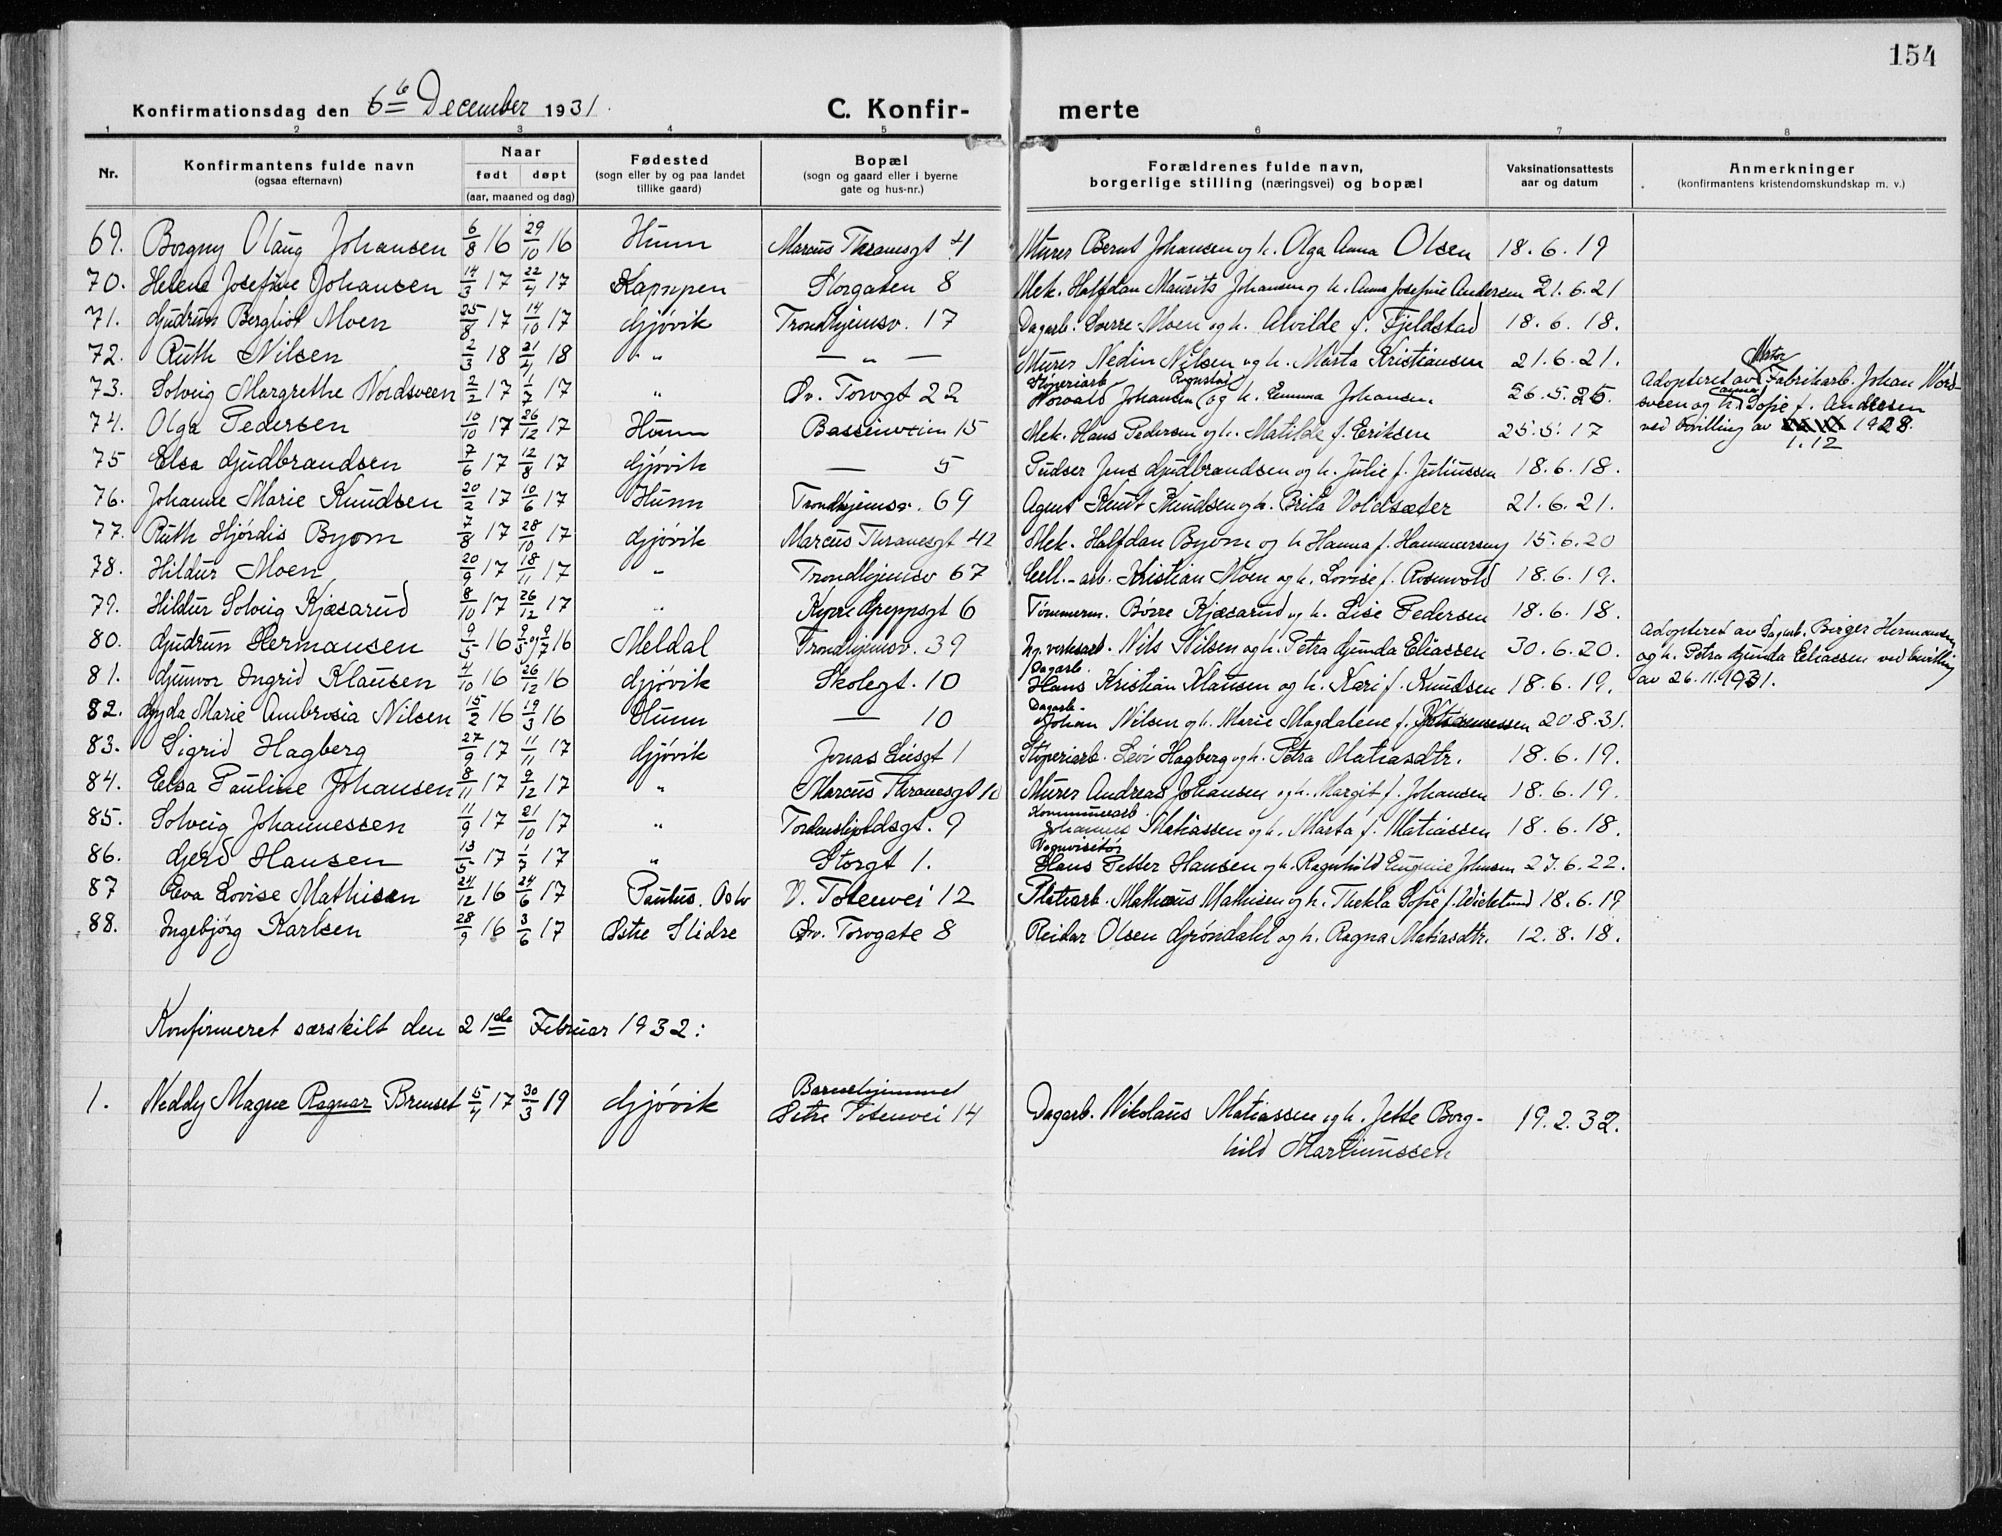 154
Konfirmationsdag den 6te December 1931. C. Konfir- merte
1 2 3 4 5 6 7 8
Nr. Konfirmantens fulde navn (ogsaa efternavn) Naar født døpt (aar, maaned og dag) Fødested (sogn eller by og paa landet tillike gaard) Bopæl (sogn og gaard eller i byerne gate og hus-nr.) Forældrenes fulde navn, borgerlige stilling (næringsvei) og bopæl Vaksinationsattests aar og datum Anmerkninger (konfirmantens kristendomskundskap m. v.)
69. Borgny Olaug Johansen 6/8 16 29/10 16 Hunn Marcus Thranesgt 41 Murer Bernt Johansen og h. Olga Anna Olsen 18.6.19
70. Helene Josefine Johansen 14/3 17 22/4 17 Kapppen Storgaten 8 Mek. Halfdan Maurits Johansen og h. Anna Josefine Andersen 21.6.21
71. Gudrun Bergliot Moen 25/8 17 14/10 17 Gjøvik Trondhjemsv. 17 Dagarb. Sverre Moen og h. Alvilde f. Fjeldstad 18.6.18.
72. Ruth Nilsen 2/3 18 21/4 18 " — " — Murer Nedin Nilsen og h. Marta Kristiansen 21.6.21.
73. Solveig Margrethe Nordsveen 2/2 17 1/7 17 " Øv. Torvgt 22 Støperiarb. Norvald Johansen Rognstad og h. Emma Johansen. 26.5.25. Adopteret av Metos Fabrikarb. Johan Nord-
sveen og h. Anna Sofie f. Andersen
74. Olga Pedersen 10/10 17 26/12 17 Hunn Bassinveien 15 Mek. Hans Pedersen og h. Matilde f. Eriksen 25.5.17 ved bevilling av 1.12 1928.
75 Elsa Gudbrandsen 7/6 17 12/8 17 Gjøvik — 5 Pudser Jens Gudbrandsen og h. Julie f. Juliussen 18.6.18.
76. Johanne Marie Knudsen 20/2 17 10/6 17 Hunn Trondhjemsv. 69 Agent Knut Knudsen og h. Brita Voldsæter 21.6.21.
77. Ruth Hjørdis Byom 7/8 17 28/10 17 Gjøvik Marcus Thranesgt 42 Mek. Halfdan Byom og h Hanna f. Hammerseng 15.6.20
78. Hildur Moen 20/9 17 18/11 17 " Trondhjemsv 67 Cell.-arb. Kristian Moen og h. Lovise f. Rosenvold 18.6.19.
79. Hildur Solveig Kjæsarud 8/10 17 26/12 17 " Kyrre Greppsgt 6 Tømmerm. Børre Kjæsarud og h. Lise Pedersen 18.6.18.
80. Gudrun Hermansen 9/5 16 9/5 og 9/7 16 Meldal Trondhjemsv. 39 verksarb. Nils Nilsen og h. Petra Gunda Eliassen 30.6.20. Adopteret av Dagarb. Birger Hermansen
og h. Petra Gunda Eliassen ved bevilling
81. Gunvor Ingrid Klausen 4/10 16 26/12 16 Gjøvik Skolegt. 10 Dagarb. Hans Kristian Klausen og h. Kari f. Knudsen 18.6.19. av 26.11.1931.
82. Gyda Marie Ambrosia Nilsen 15/2 16 19/3 16 Hunn — 10 Dagarb. Johan Nilsen og h. Marie Magdalene f. Johannessen 20.8.31.
83. Sigrid Hagberg 27/9 17 11/11 17 Gjøvik Jonas Liesgt 1 Støperiarb. Levi Hagberg og h. Petra Matiasdtr. 18.6.19.
84. Elsa Pauline Johansen 8/11 17 9/12 17 " Marcus Thranesgt 10 Murer Andreas Johansen og h. Margit f. Johansen 18.6.19.
85. Solveig Johannessen 11/9 17 21/10 17 " Tordenskjoldsgt. 9 Kommunearb. Johannes Matiassen og h. Marta f. Matiassen 18.6.18.
86. Gerd Hansen 13/5 17 1/7 17 " Storgt 1. Vognvisitør Hans Petter Hansen og h. Ragnhild Eugenie Johnsen 27.6.22.
87 Eva Lovise Mathisen 24/12 16 24/6 17 Paulus. Oslo V. Totenvei 12 Platearb. Mathæus Mathisen og h. Thekla Sofie f. Wicklund 18.6.19
88. Ingebjørg Karlsen 28/9 16 3/6 17 Østre Slidre Øv. Torvgate 8 Reidar Olsen Grøndahl og h. Ragna Matiasdtr. 12.8.18.
Konfirmeret særskilt den 21de Februar 1932:
1. Neddy Magne Ragnar Brenset 5/4 17 30/3 19 Gjøvik Barnehjemmet Østre Totenvei 14 Dagarb. Nikolaus Matiassen og h. Jette Borg-
hild Martinussen 19.2.32.